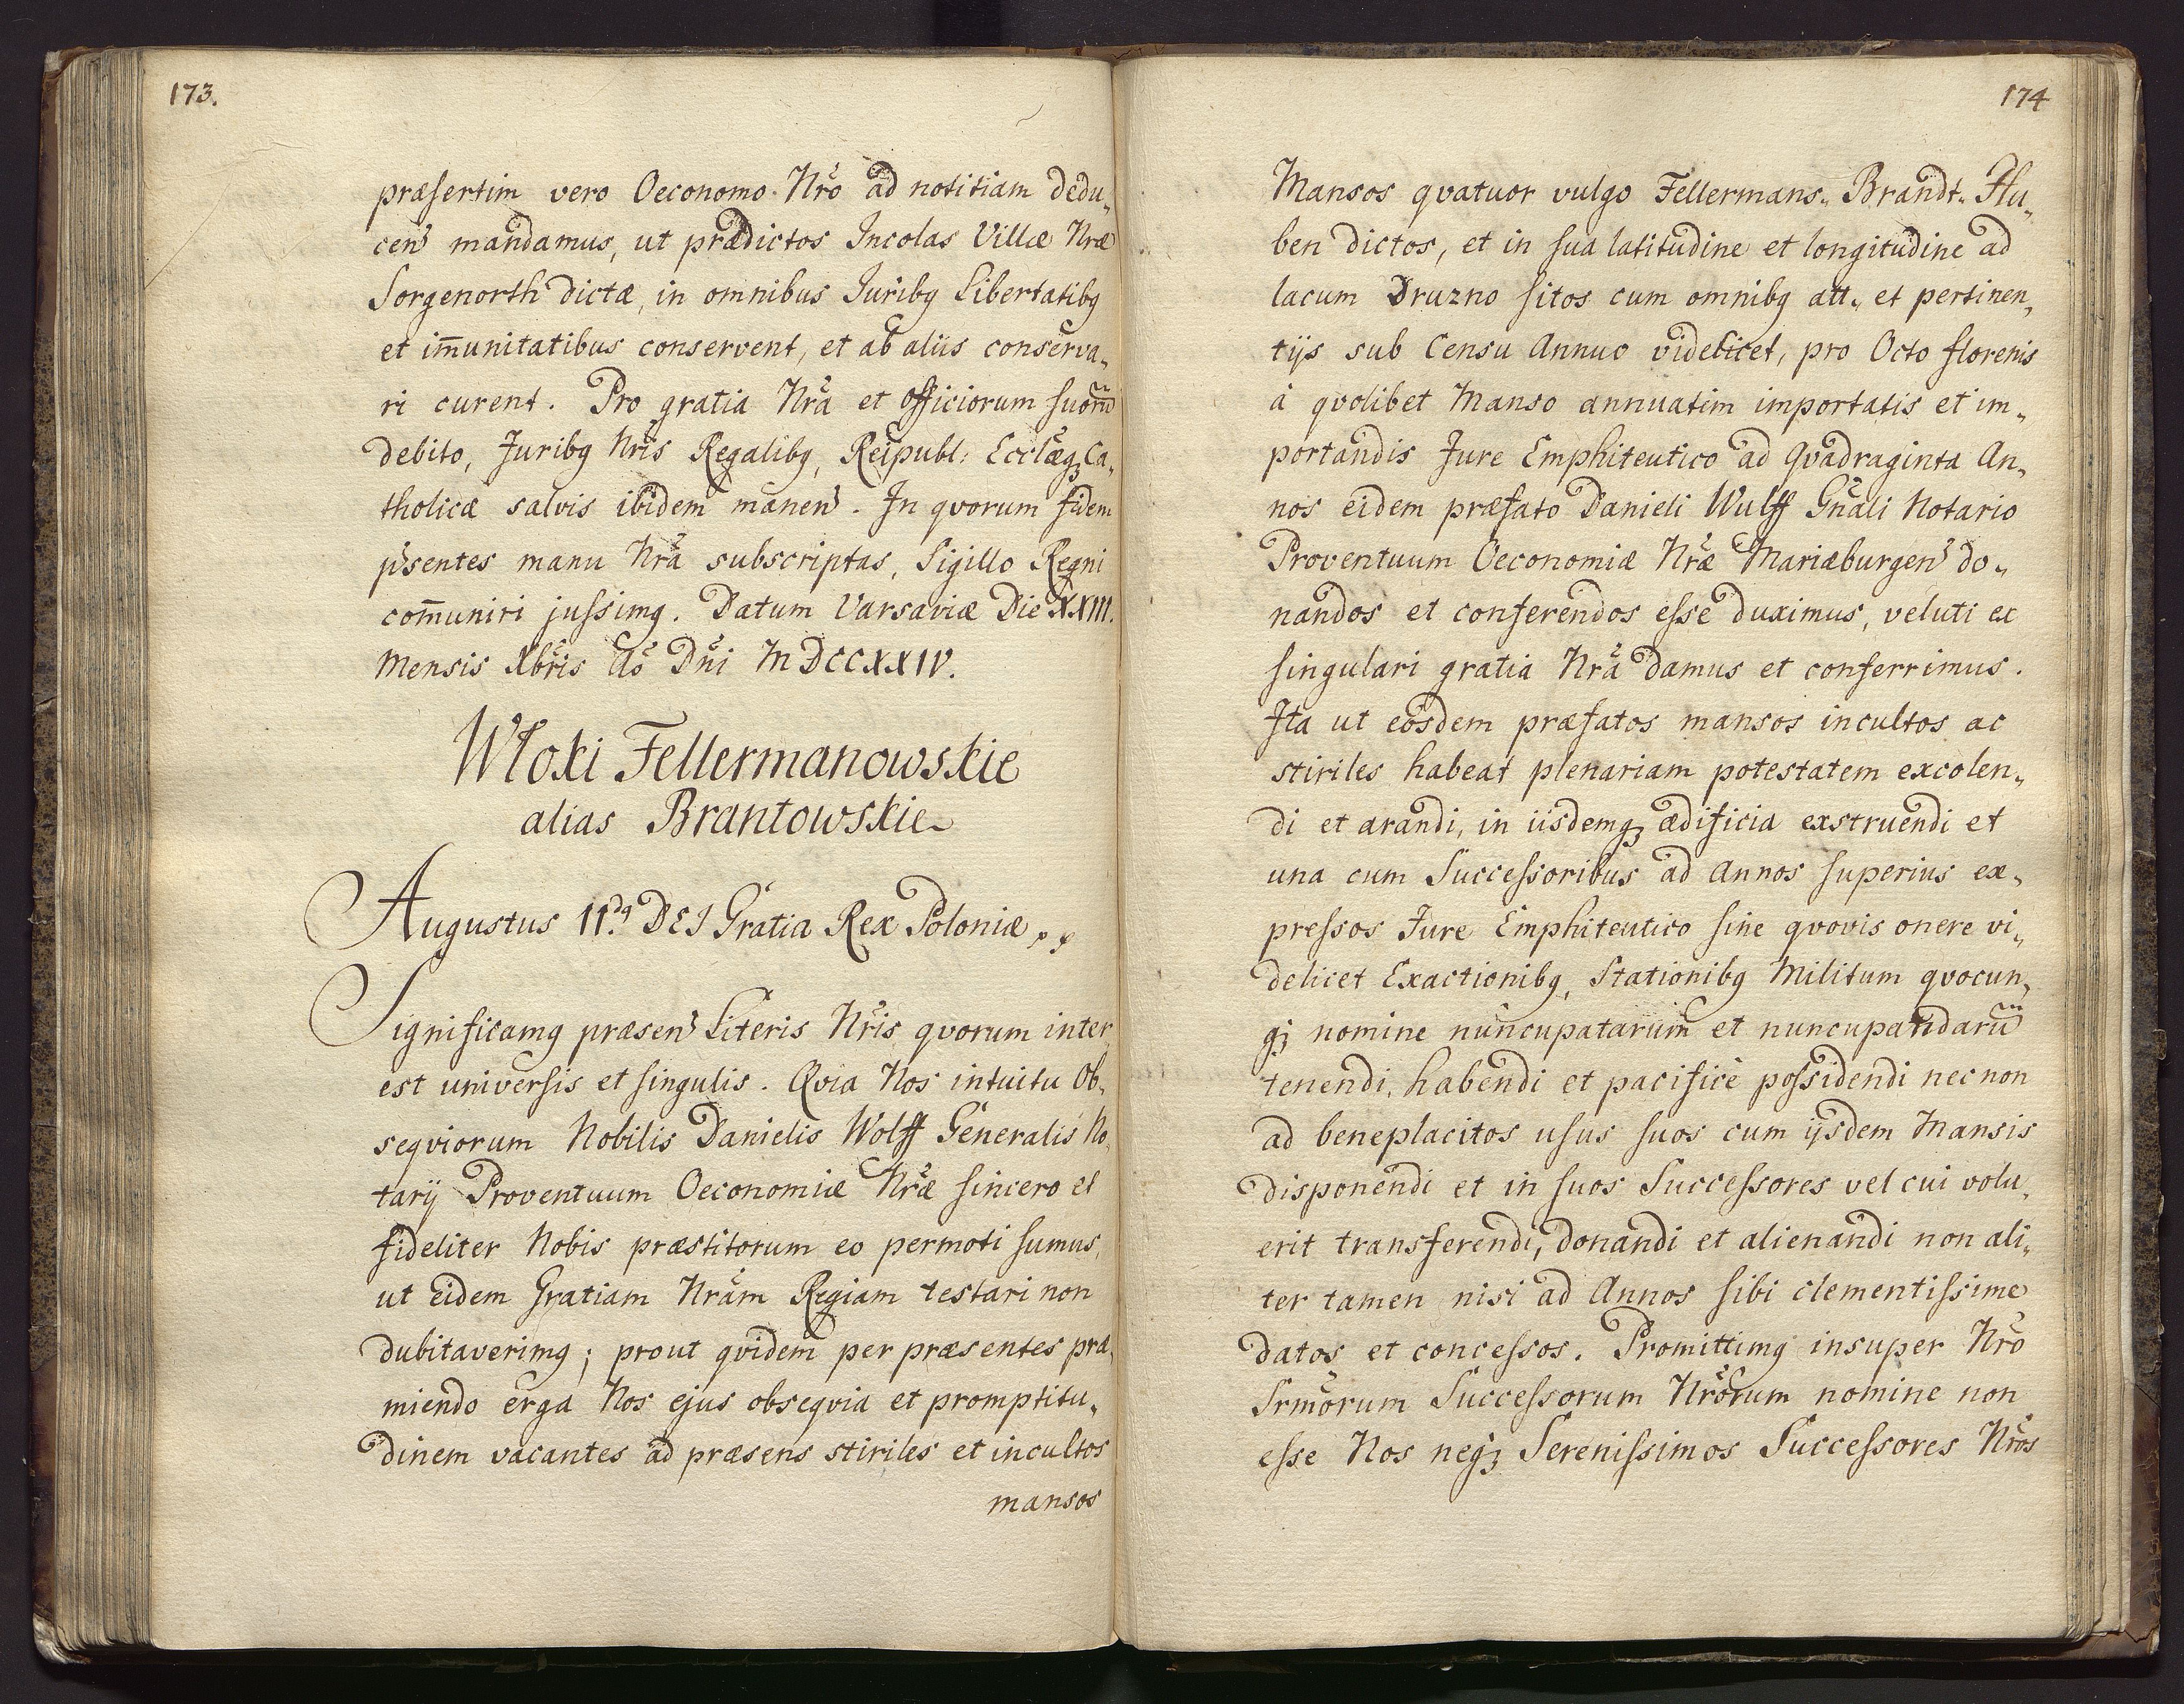 173.
præsertim vero Oeconomo Nrõ ad notitiam dedu„
cen̄ mandamus, ut prædictos Incolas Villæ Nræ
Sorgenorth dictæ, in omnibus Juribq Libertatibq
et im̄unitatibus conservent, et ab aliis conserva„
ri curent. Pro gratia Nrã et officiorum suorũ
debito, Juribq Nrĩs Regalibq, Reipubl: Ecclæqꝫ Ca„
tholicæ salvis ibidem manen̄. In qvorum fidem
p̃sentes manu Nrã subscriptas, Sigillo Regni
com̄uniri jussimq. Datum Varsaviæ Die XXIII.
Mensis Xbrĩs Aõ Dnĩ MDCCXXIV.
Włoki Fellermanowskie
alias Brantowskie
Augustus II.dq DEI Gratia Rex Poloniæ
Significamq præsen̄ Literis Nrĩs qvorum inter
est universis et singulis. Qvia Nos intuitu Ob„
seqviorum Nobilis Danielis Wolff Generalis No„
tarij Proventuum Oeconomiæ Nræ̃ sincero et
fideliter Nobis præstitorum eo permoti sumus,
ut eidem Gratiam Nrãm Regiam testari non
dubitaverimq; prout qvidem per præsentes præ„
miendo erga Nos ejus obseqvia et promptitu„
dinem vacantes ad præsens stiriles et incultos
mansos
174
Mansos qvatuor vulgo Fellermans„ Brandt„ Hu„
ben dictos, et in sua latitudine et longitudine ad
lacum Druzno sitos cum omnibq att„ et pertinen„
tijs sub Censu Annuo videlicet, pro Octo florenis
à qvolibet Manso annuatim importatis et im„
portandis Jure Emphiteutico ad Qvadraginta An„
nos eidem præfato Danieli Wulff Gnãli Notario
Proventuum Oeconomiæ Nræ̃ Mariæburgen̄ do„
nandos et conferendos esse duximus, veluti ex
singulari gratia Nrã damus et conferrimus.
Ita ut eosdem præfatos mansos incultos ac
stiriles habeat plenariam potestatem excolen„
di et arandi, in iisdemqꝫ ædificia exstruendi et
una cum Successoribus ad Annos superius ex„
pressos Jure Emphiteutico sine qvovis onere vi„
delicet Exactionibq, Stationibq Militum qvocun„
qꝫ nomine nuncupatarum et nuncupandarũ
tenendi, habendi et pacificè possidendi nec non
ad beneplacitos usus suos cum ijsdem Mansis
disponendi et in suos Successores vel cui volu„
erit transferendi, donandi et alienandi non ali„
ter tamen nisi ad Annos sibi clementissime
datos et concessos. Promittimq insuper Nrõ
Srmõrum Successorum Nrõrum nomine non
esse Nos neqꝫ Serenissimos Successores Nrõs